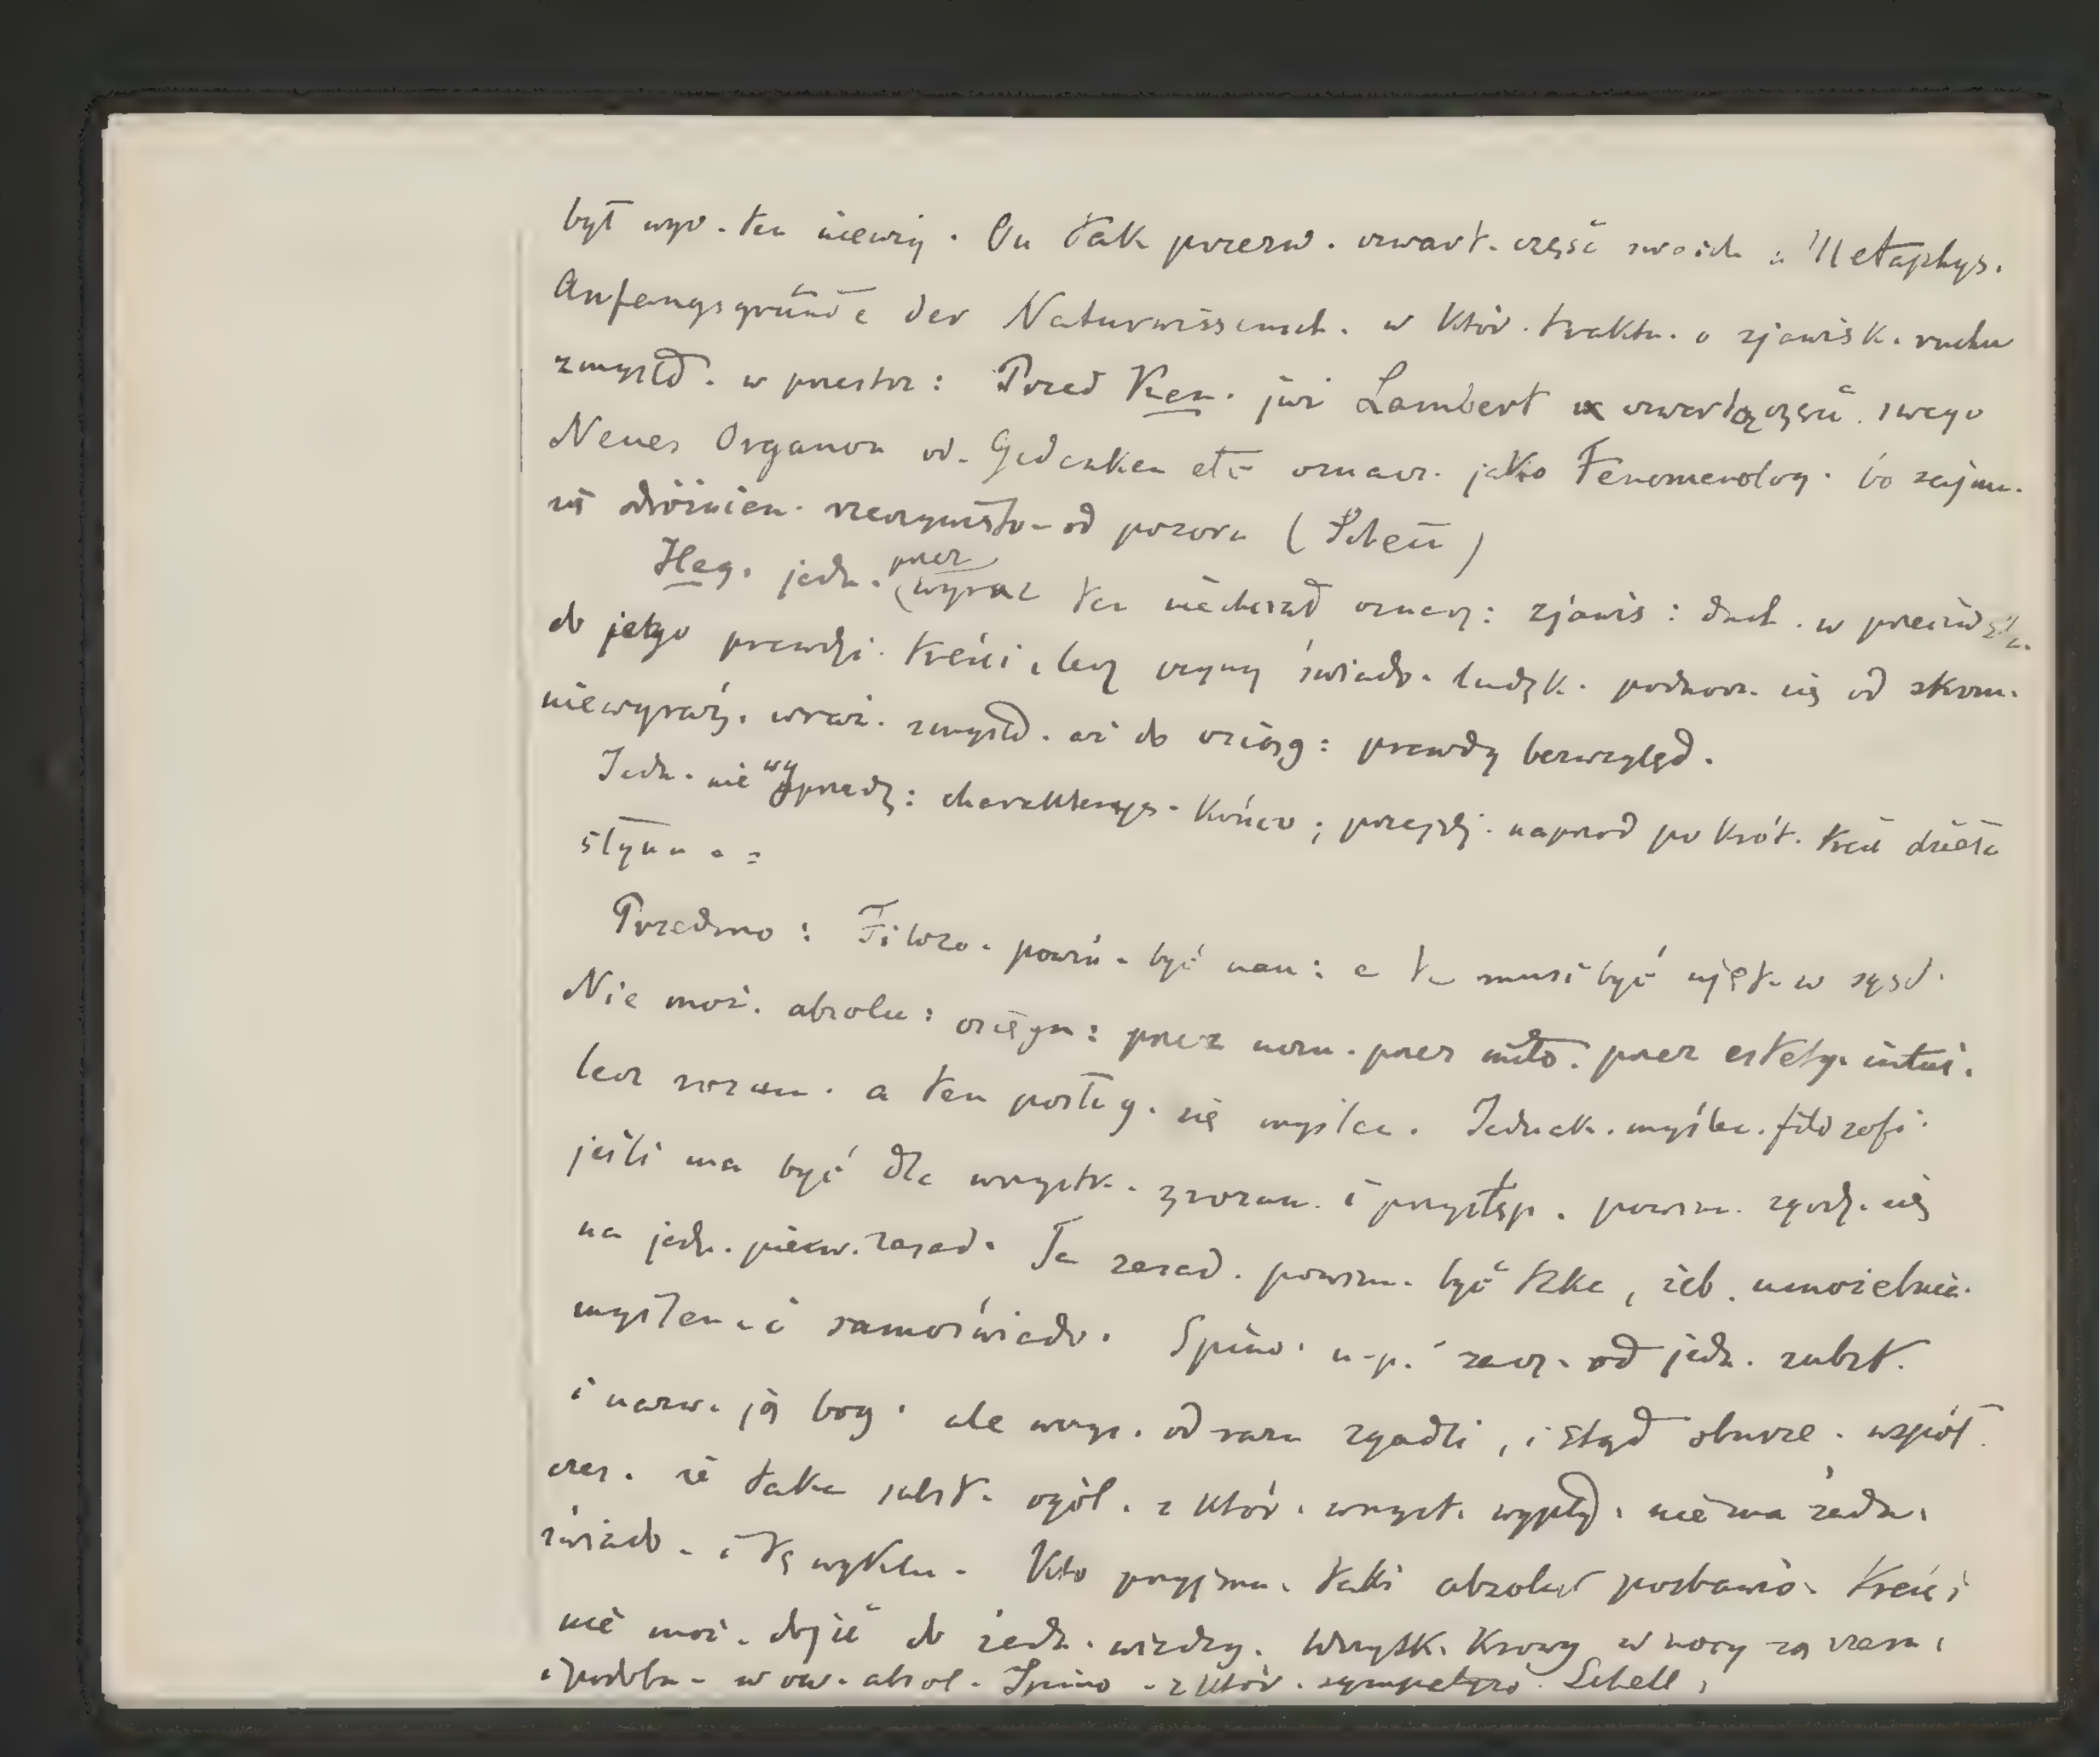 był wyr. ten niewiy. On tak przezw. czwart. część swoich : Metaphys.
Anfangsgründe der Naturwissensch. w któr. traktu. o zjawisk. ruchu
zmysłd. w przestrz: Przed Kan. już Lambert czwartą część. swego
Neues Organon od. Gedanken etc oznacz. jako Fenomenolog. bo zajm.
się odróżnien. rzeczywisto- od pozoru (Schein)
Heg. jedn. przez wyraz ten nie chciał oznacz: zjawis: duch. w przeciwst.
do jego prawdzi. treści, lecz czyny świado. ludzk. podnosz. się od skrom.
niewyraź. wraż. zmysł. aż do osiąg: prawdy bezwzględ.
Jedn. nie wyprzedz: charakterys. końco; przejdź. naprzód po krót. treść dzieła
słynn . =
Przedmo: Filozo. powin. być nau: a ta musi być ujęt. w sąd.
Nie moż. absolu: osięgn: przez uczu. przez miło. przez estety. intui.
lecz rozum. a ten posług. się myślen. Jednak. myślen. filozofi.
jeśli ma być dla wszystk. zrozum. i przystęp. powin. zgodz. się
na jedn. pierw. zasad. Ta zasad. powin. być taka, żeb. umożebnia.
myślen. i samoświado. Spino. n-p. zacz. od jedn. subst.
i nazw. ją bog. ale wszys. od razu zgadli, i stąd oburze. współ.
czes. że taka subst. ogól. z któr. wszyst. wypły. nie ma żadn.
świado. i tą wytkn. Kto przyjmu. taki absolut pozbawio. treści
nie moż. dojść do żadn. wiedzy. Wszystk. krowy w nocy są czarn,
i podobn. w ow. absol. Spino. z któr. sympatyzo. Schell,